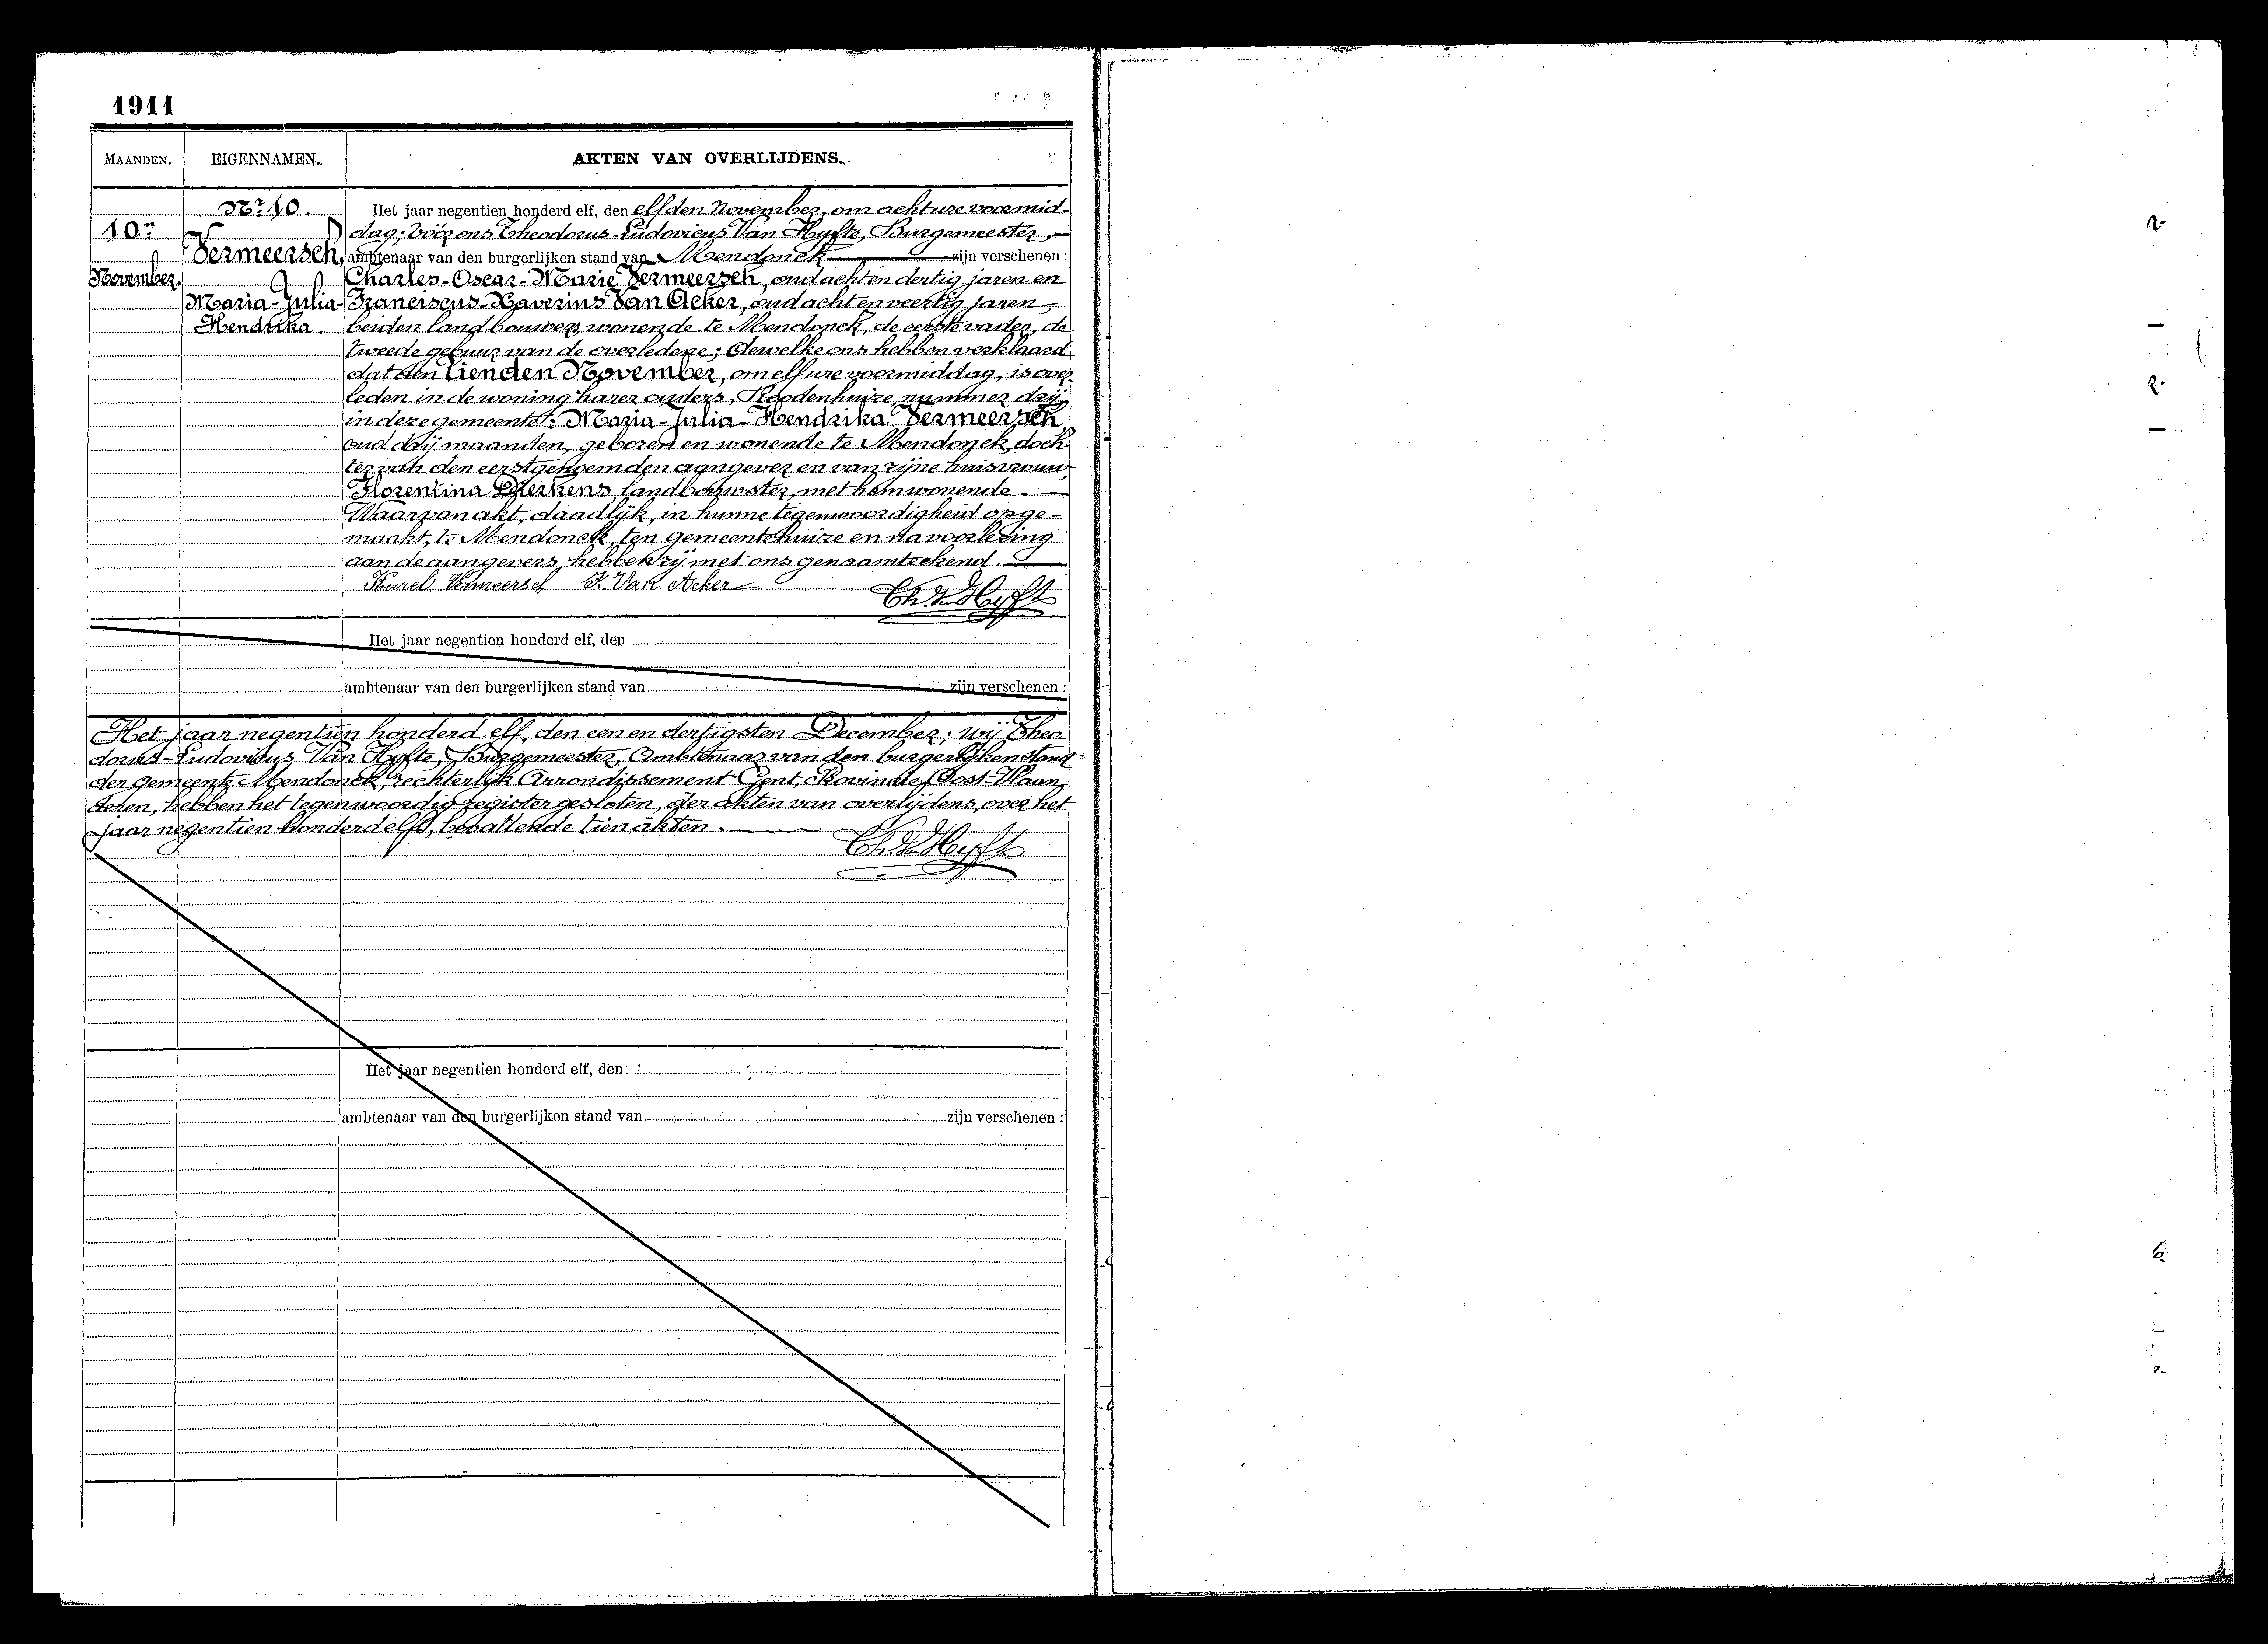 1911
MAANDEN.
EIGENNAMEN.
AKTEN VAN OVERLIJDENS.
Nr. 10.
10n
November.
Vermeersch,
Maria-Julia-
Hendrika.
Het jaar negentien honderd elf, den elfden November, om acht ure voormid-
dag; vóór ons Theodorus-Ludovicus Van Hyfte, Burgemeester,
ambtenaar van den burgerlijken stand van Mendonck zijn verschenen :
Charles-Oscar-Marie Vermeersch, oud acht en dertig jaren en
Franciscus-Xaverius Van Acker, oud acht en veertig jaren,
beiden landbouwers, wonende te Mendonck, de eerste vader, de
tweede gebuur van de overledene; dewelke ons hebben verklaard
dat den tienden November, om elf ure voormiddag, is over-
leden in de woning harer ouders, Roodenhuize, nummer drij,
in deze gemeente: Maria-Julia-Hendrika Vermeersch,
oud drij maanden, geboren en wonende te Mendonck, doch-
ter van den eerstgenoemden aangever en van zijne huisvrouw,
Florentina Dierkens, landbouwster, met hem wonende.
Waarvan akt, daadlijk, in hunne tegenwoordigheid opge-
maakt, te Mendonck, ten gemeentehuize en na voorlezing
aan de aangevers, hebben zij met ons genaamteekend.
Karel Vermeersch F. Van Acker
Th. Van Hyfte
Het jaar negentien honderd elf, den
ambtenaar van den burgerlijken stand van zijn verschenen :
Het jaar negentien honderd elf, den een en dertigsten December; wij Theo-
dorus-Ludovicus Van Hyfte, Burgemeester, Ambtenaar van den burgerlijken stand
der gemeente Mendonck, rechterlijk Arrondissement Gent, Provincie Oost-Vlaan-
deren, hebben het tegenwoordig register gesloten, der akten van overlijdens, over het
jaar negentien honderd elf, bevattende tien akten.
Th. Van Hyfte
Het jaar negentien honderd elf, den
ambtenaar van den burgerlijken stand van zijn verschenen :